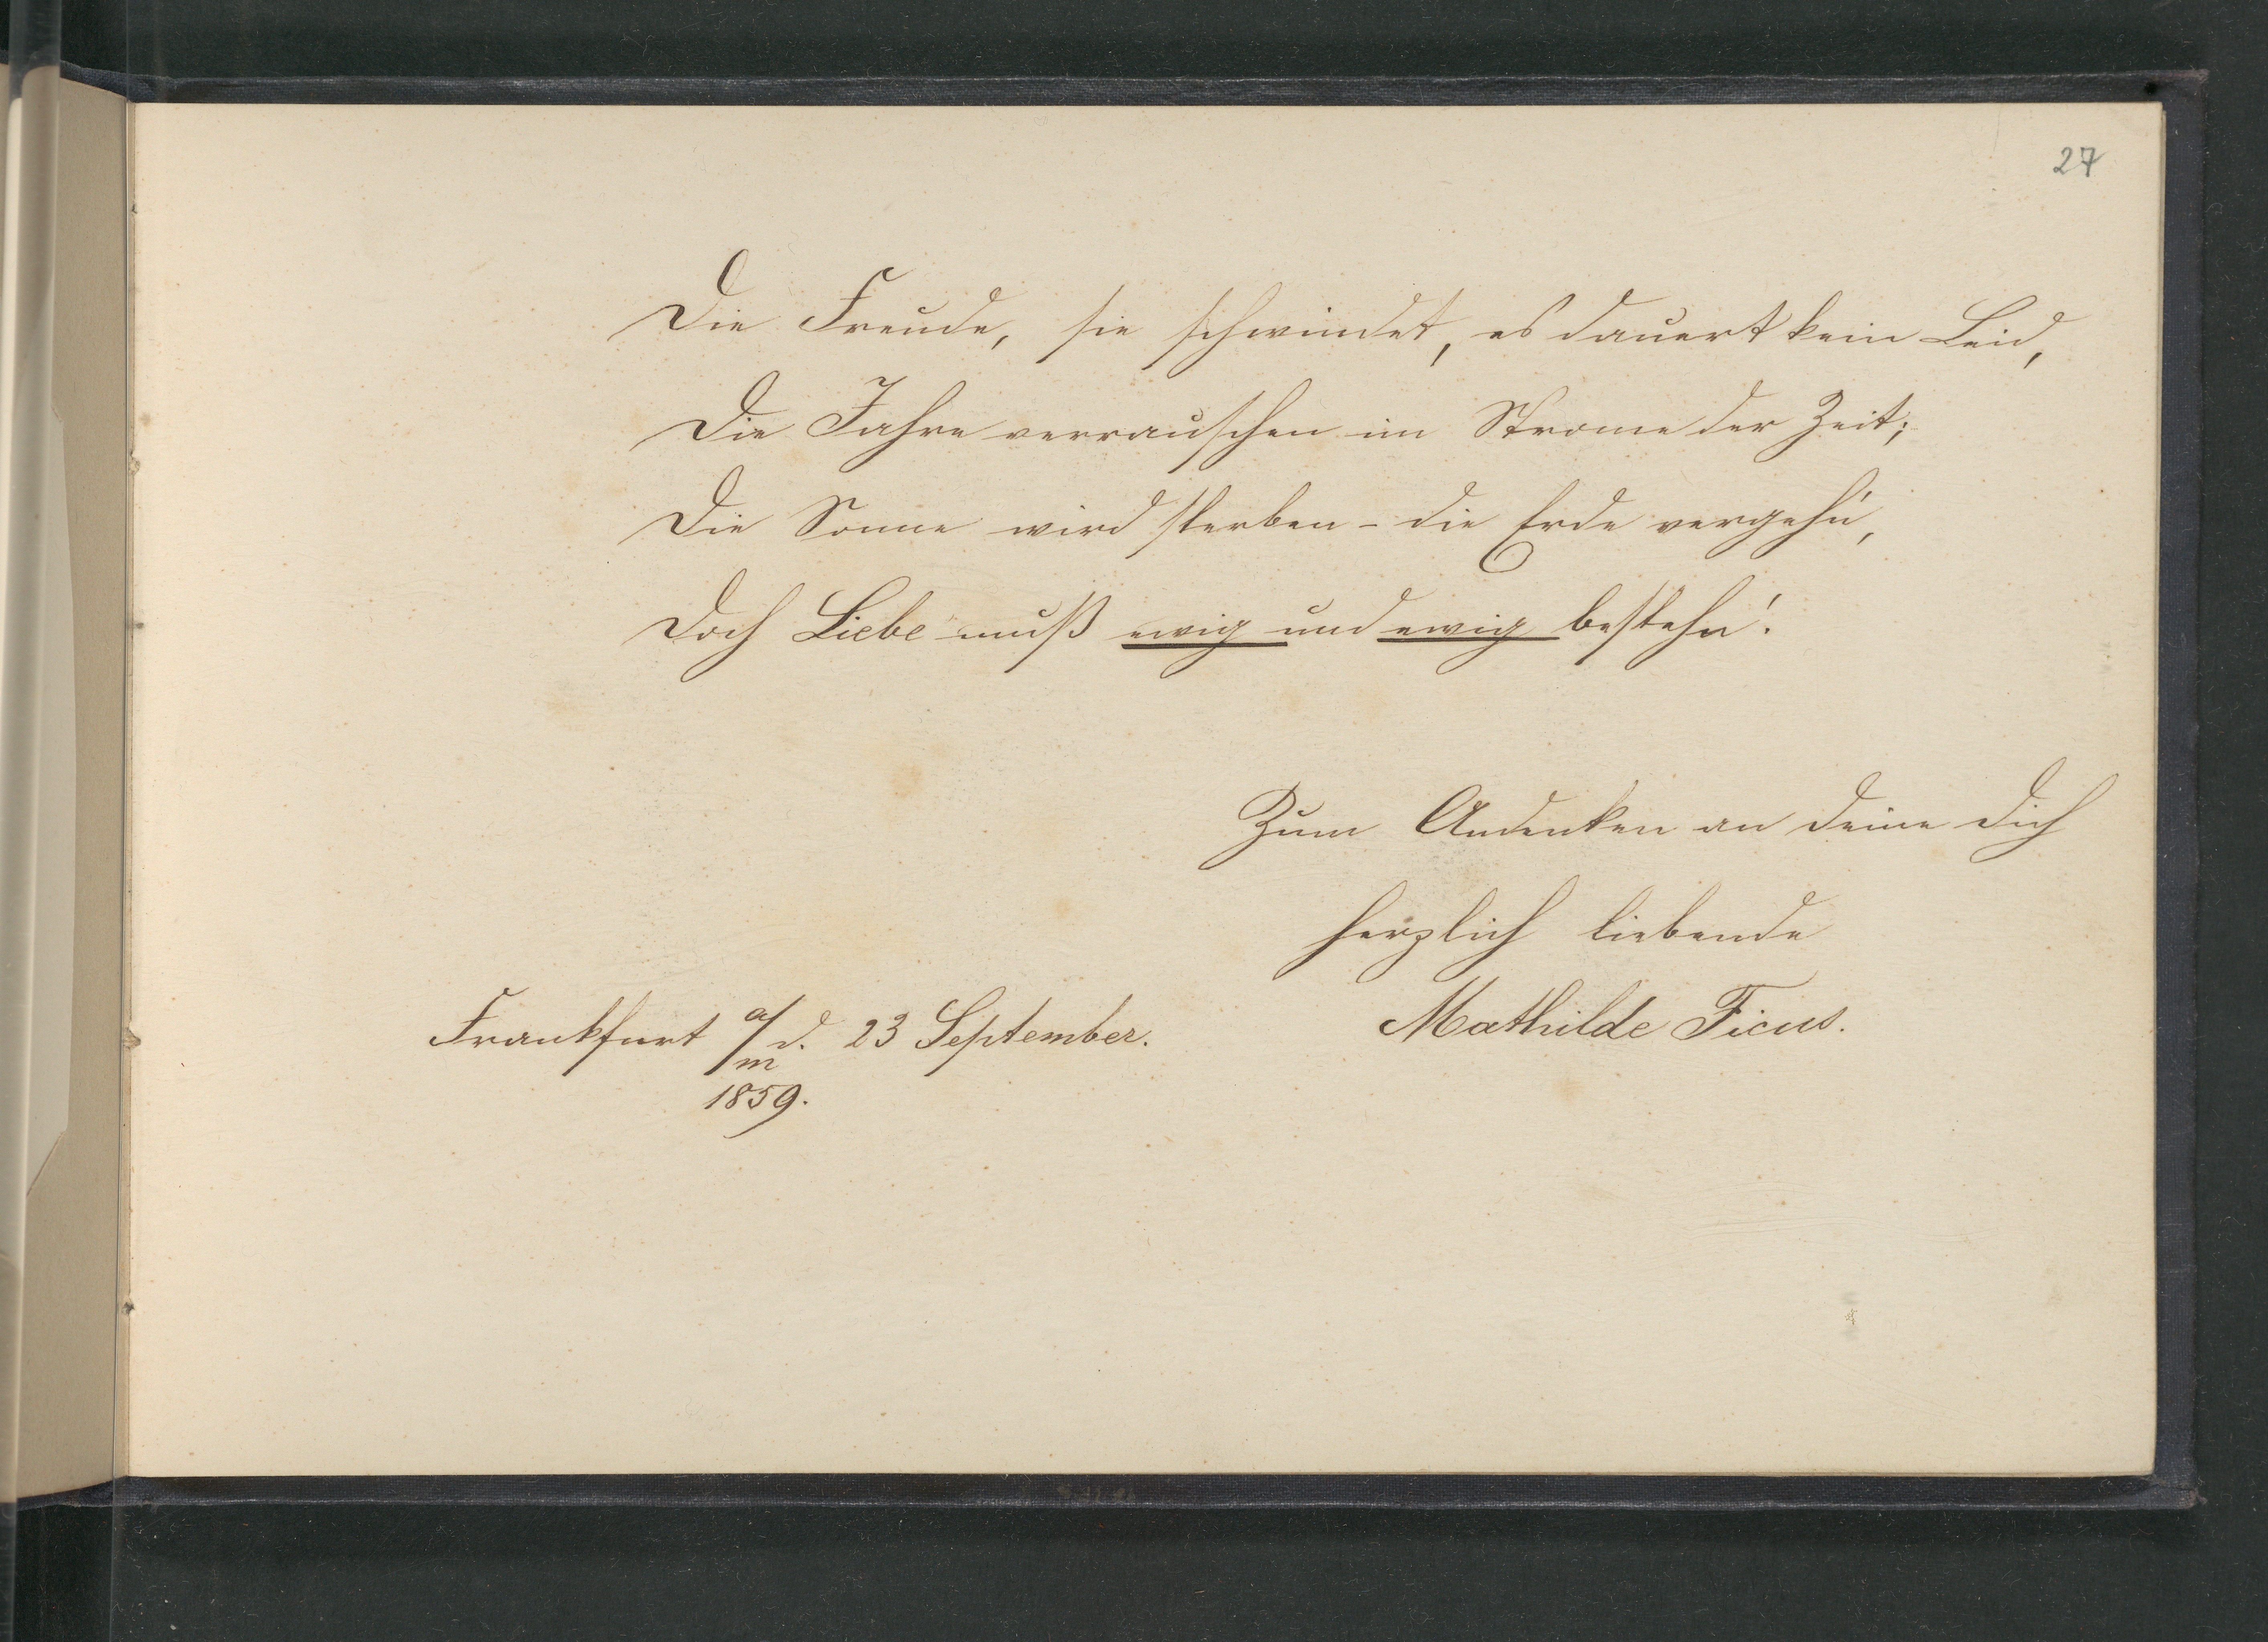 27
Die Freude, sie schwindet, es dauert kein Leid,
Die Jahre verrauschen im Strome der Zeit;
Die Sonne wird sterben - die Erde vergehn,
Doch Liebe muß ewig und ewig bestehn!
Zum Andenken an Deine Dich
herzlich liebende
Frankfurt a/m d. 23 September. Mathilde Ficus.
1859.